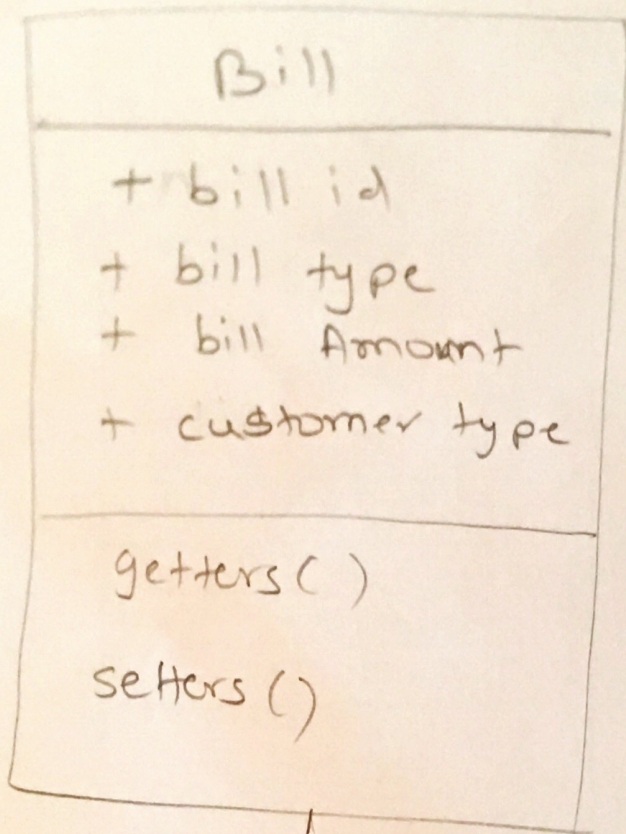 Bill
+ bill id
+ bill type
+ bill Amount
+ customer type
getters()
setters()